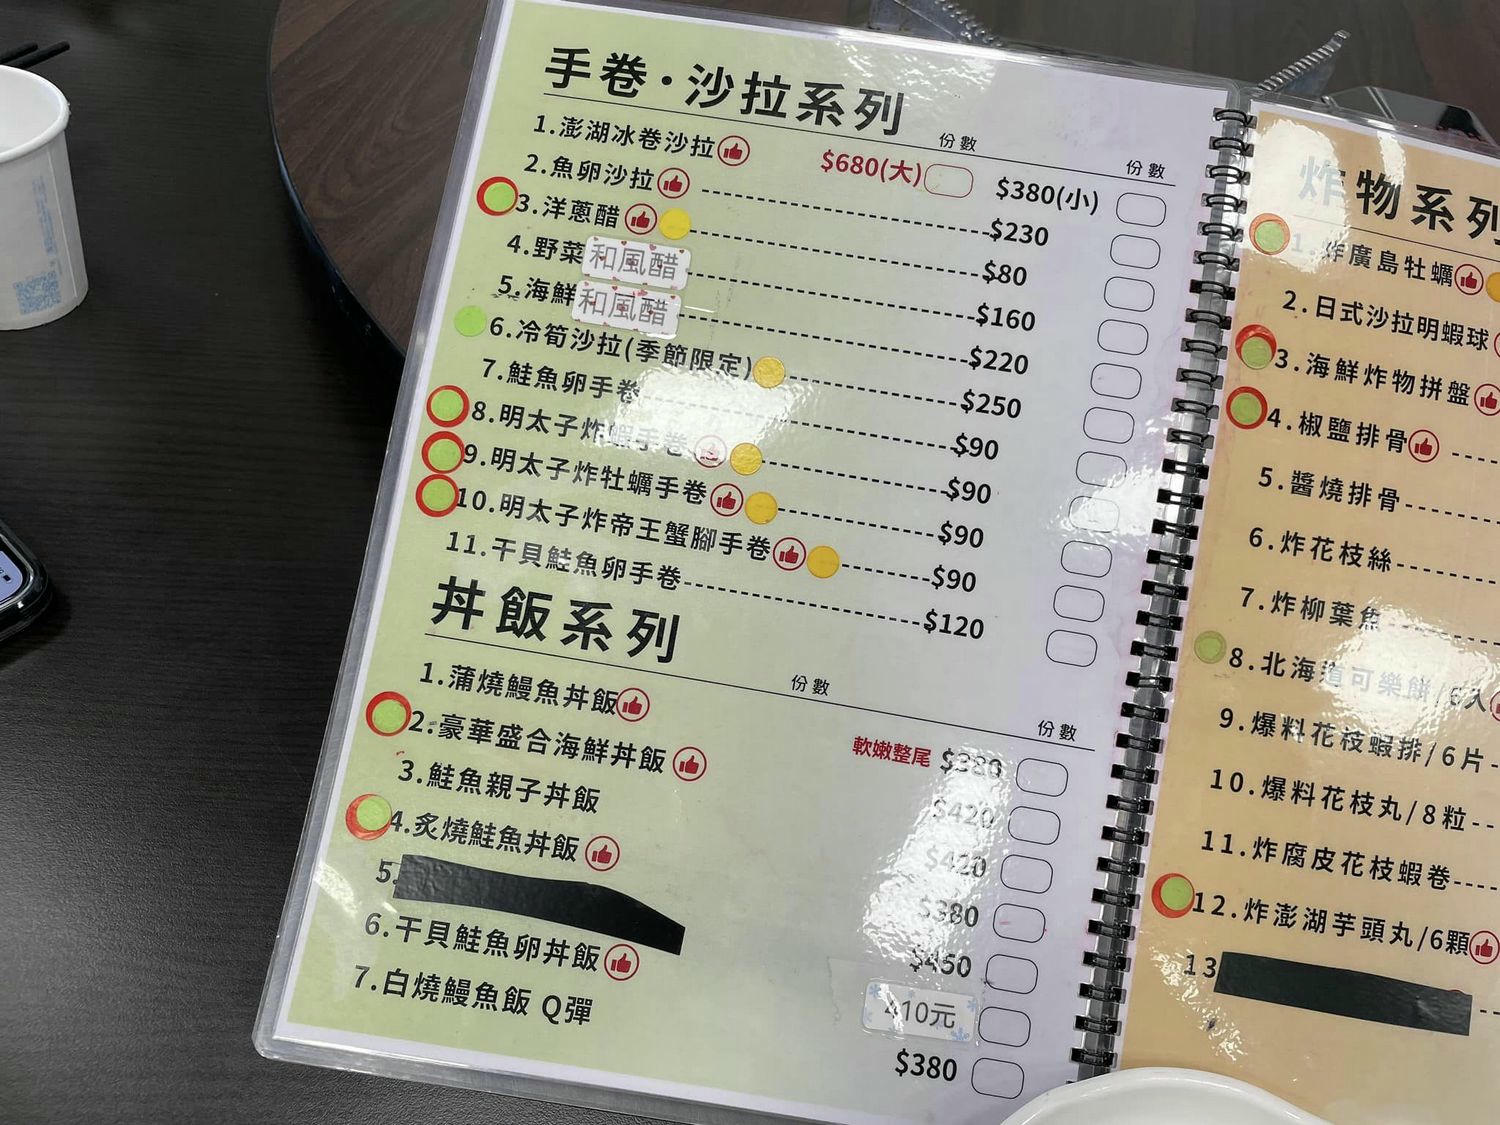 手卷·沙拉系列
份數
份數
1.澎湖冰卷沙拉 $680(大) $380(小)
2.魚卵沙拉 $230
3.洋蔥醋 $80
4.野菜和風醋 $160
5.海鮮和風醋 $220
6.冷筍沙拉(季節限定) $250
7.鮭魚卵手卷 $90
8.明太子炸蝦手卷 $90
9.明太子炸牡蠣手卷 $90
10.明太子炸帝王蟹腳手卷 $90
11.干貝鮭魚卵手卷 $120
丼飯系列
份數
份數
1.蒲燒鰻魚丼飯 軟嫩整尾 $380
2.豪華盛合海鮮丼飯 $420
3.鮭魚親子丼飯 $420
4.炙燒鮭魚丼飯 $380
5. $450
6.干貝鮭魚卵丼飯 410元
7.白燒鰻魚飯 Q彈 $380
炸物系列
1.炸廣島牡蠣
2.日式沙拉明蝦球
3.海鮮炸物拼盤
4.椒鹽排骨
5.醬燒排骨
6.炸花枝絲
7.炸柳葉魚
8.北海道可樂餅/6入
9.爆料花枝蝦排/6片
10.爆料花枝丸/8粒
11.炸腐皮花枝蝦卷
12.炸澎湖芋頭丸/6顆
13